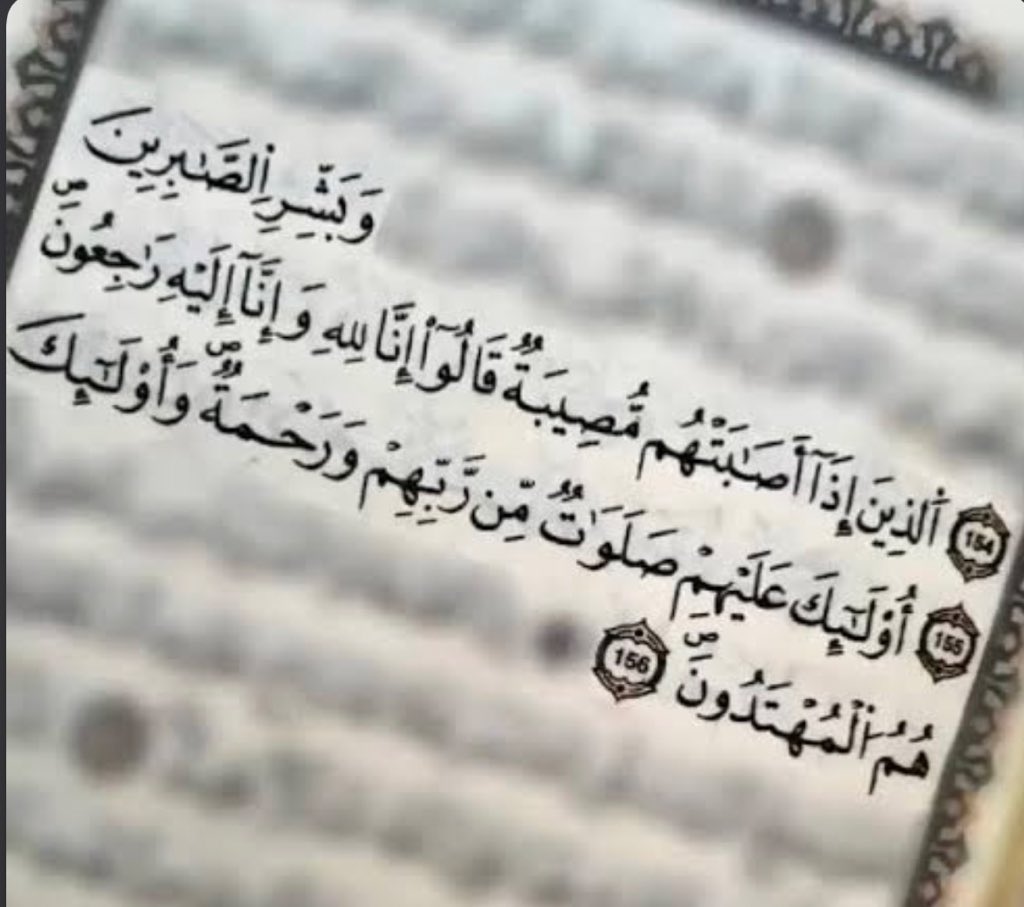 وَبَشِّرِ اِ۬لصَّٰبِرِينَ
154 اَ۬لذِينَ إِذَآ أَصَٰبَتْهُم مُّصِيبَةٞ قَالُوٓاْ إِنَّا لِلهِ وَإِنَّآ إِلَيْهِ رَٰجِعُونَۖ
155 أُوْلَٰٓئِكَ عَلَيْهِمْ صَلَوَٰتٞ مِّن رَّبِّهِمْ وَرَحْمَةٞۖ وَأُوْلَٰٓئِكَ
هُمُ اُ۬لْمُهْتَدُونَۖ 156